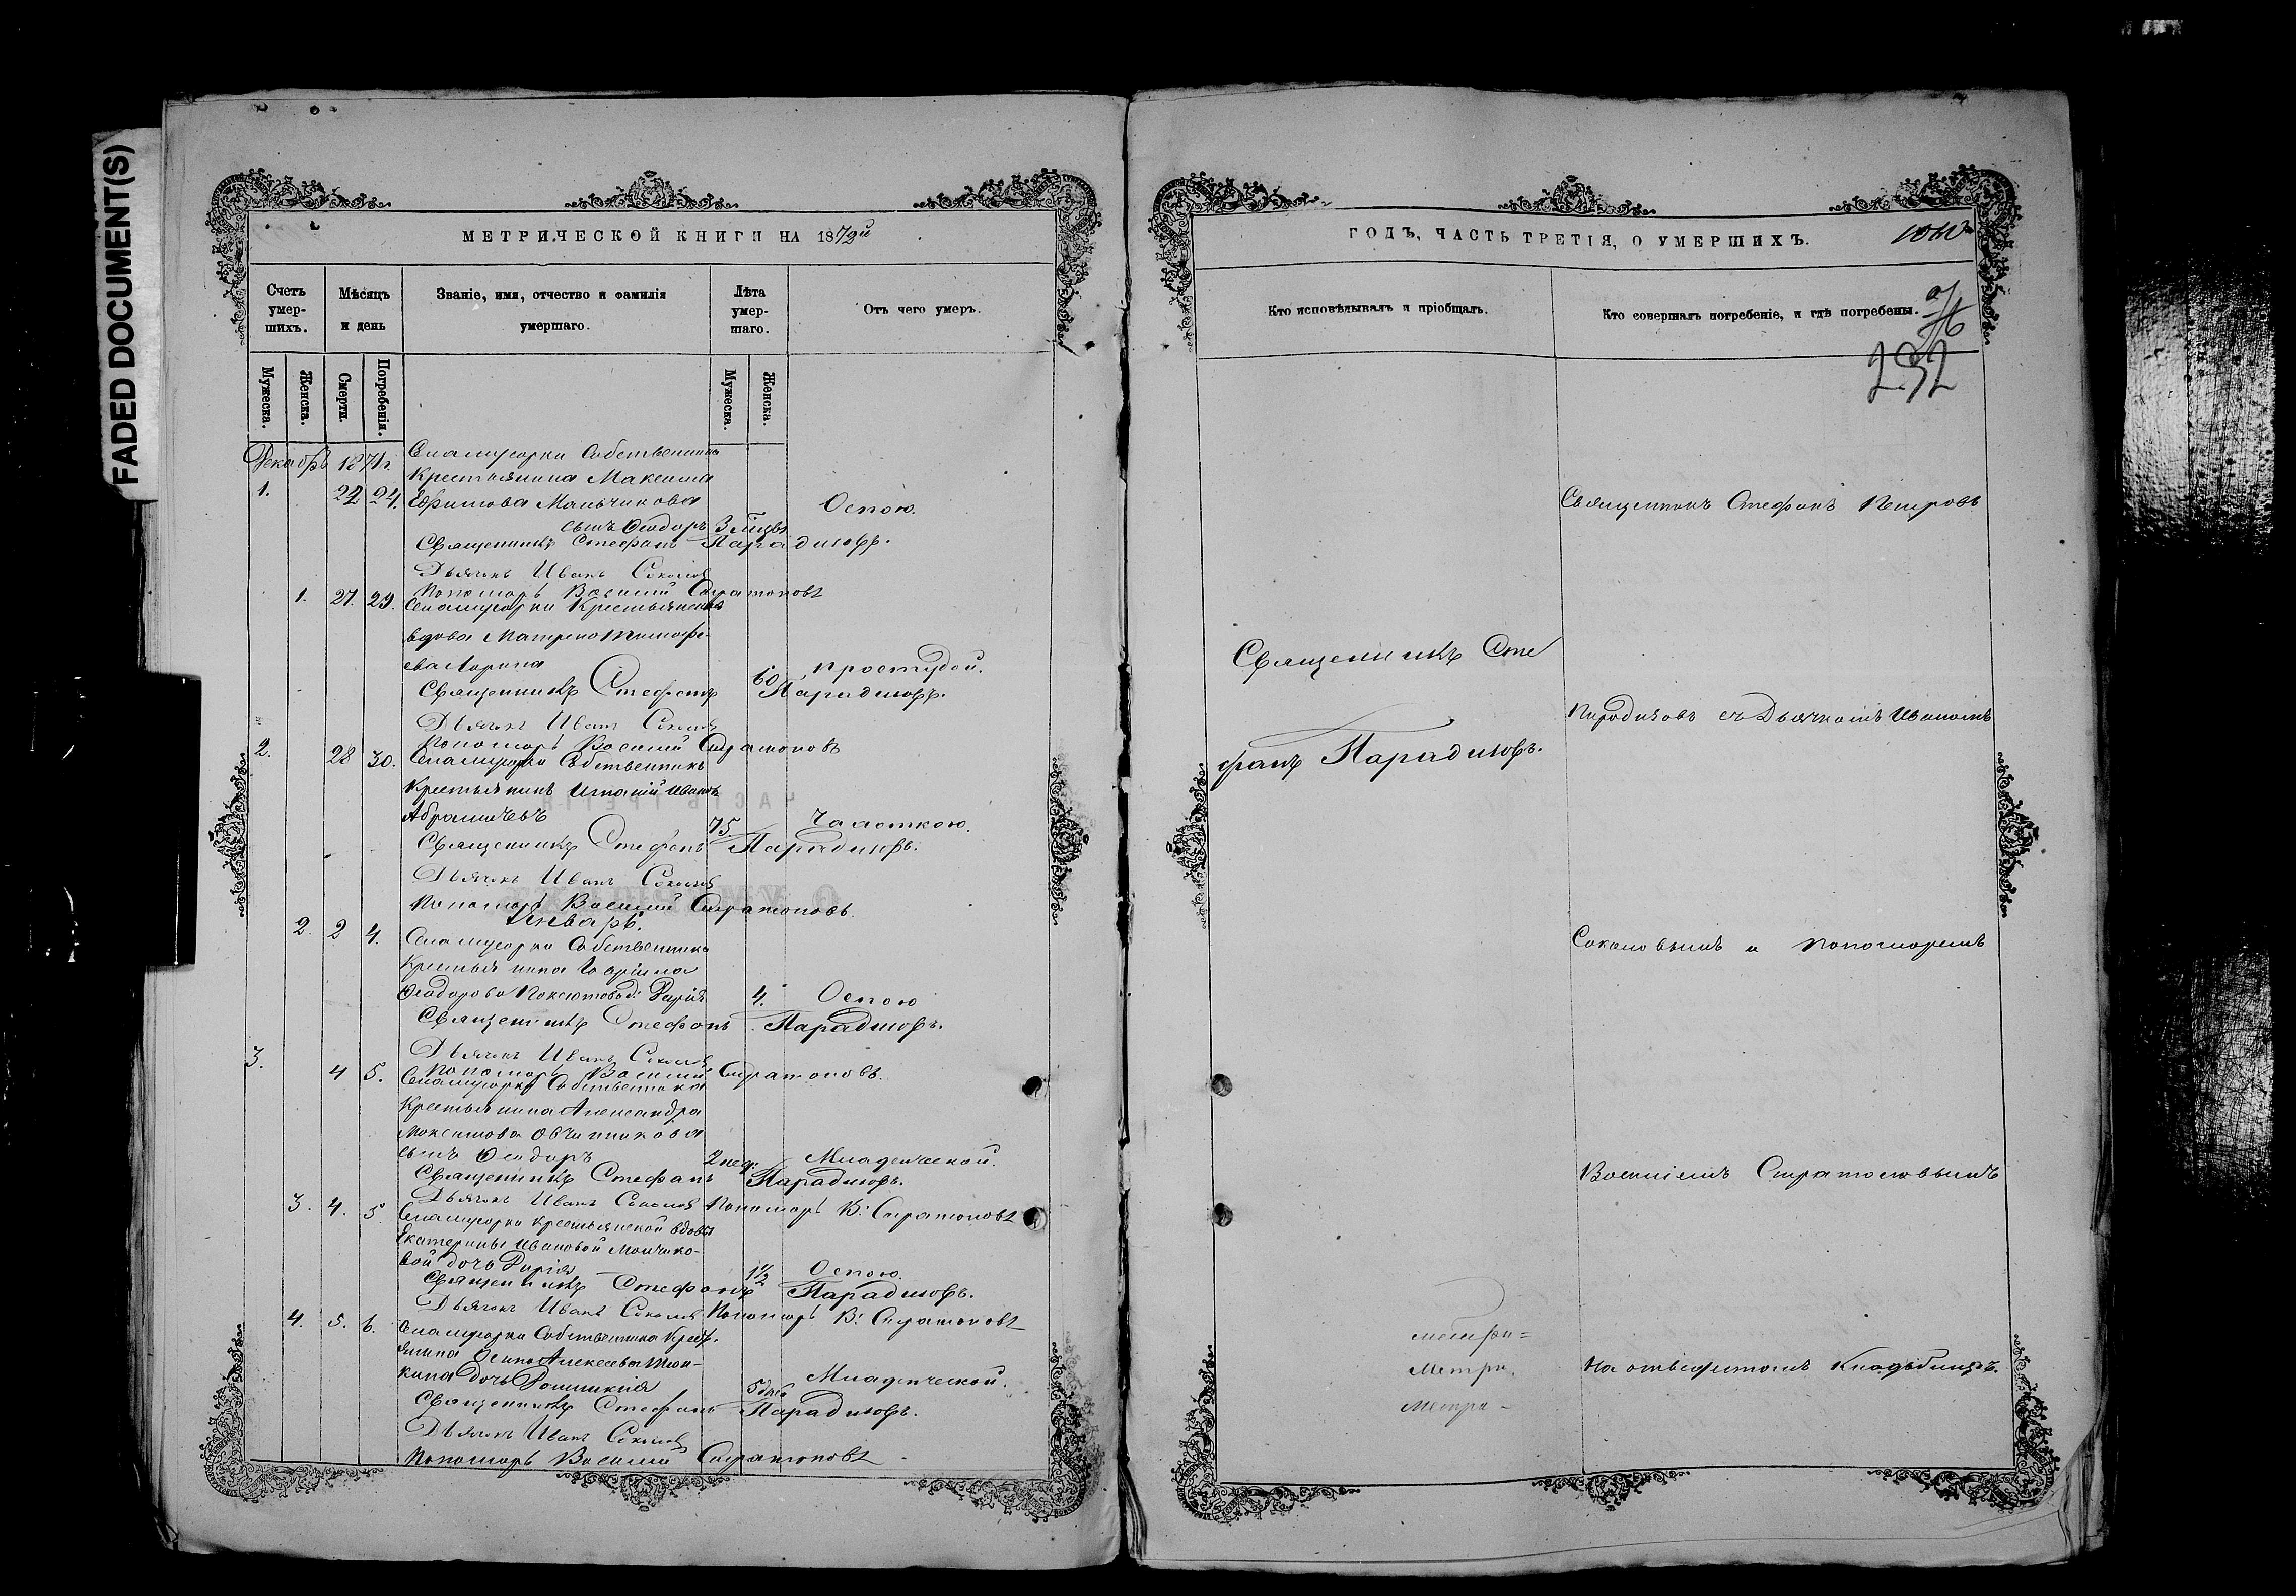 FADED DOCUMENT(S)
МЕТРИЧЕСКОЙ КНИГИ НА 1872й
Счетъ умер-шихъ.
Мѣсяцъ и день
Званіе, имя, отчество и фамилія умершаго.
Лѣта умер-шаго.
Отъ чего умеръ.
Мужеска.
Женска.
Смерти.
Погребенія.
Мужеска.
Женска.
Декабрь 1871г.
Собственника
Крестьянина Максима
1. 22 24. Ефимова Мальчикова Оспою.
сынъ Ѳеодоръ 3 мѣсцы
Священникъ Стефанъ Парадизовъ.
Дьячокъ Иванъ Соколовъ
Пономарь Василий Стратоновъ
1. 27. 29. Крестьянская
вдова Матрена Тимофе-
ева Ларина 60 простудой.
Священникъ Стефанъ Парадизовъ.
Дьячокъ Иванъ Соколовъ
Пономарь Василий Стратоновъ
2. 28 30. Собственникъ
Крестьянинъ Игнатий Ивановъ
75. Чахоткою.
Священникъ Стефанъ Парадизовъ.
Дьячокъ Иванъ Соколовъ
Пономарь Василий Стратоновъ.
Январь.
2. 2 4. Собственника
Крестьянина
Ѳеодорова Дарія 4. Оспою
Священникъ Стефанъ Парадизовъ.
Дьячокъ Иванъ Соколовъ
Пономарь Василий Стратоновъ.
3. 4 5. Собственника
Крестьянина Александра
Максимова Овчинникова
сынъ Ѳеодоръ 2 нед. Младенческой.
Священникъ Стефанъ Парадизовъ.
Дьячокъ Иванъ Соколовъ Пономарь В: Стратоновъ
3. 4. 5. крестьянской вдовы
Екатерины Ивановой Мальчико-
вой дочь Дарія 1½ Оспою.
Священникъ Стефанъ Парадизовъ.
Дьячокъ Иванъ Соколовъ Пономарь В: Стратоновъ
4. 5. 6. Собственника Крест.
янина Осипа Алексеева
кина дочь Домникія 5 дней Младенческой.
Священникъ Стефанъ Парадизовъ.
Дьячокъ Иванъ Соколовъ
Пономарь Василий Стратоновъ
ГОДЪ, ЧАСТЬ ТРЕТІЯ, О УМЕРШИХЪ.
Кто исповѣдывалъ и пріобщалъ.
Кто совершалъ погребеніе, и гдѣ погребены.
232
Священникъ Сте
фанъ Парадизовъ.
Метри-
Метри.
Метри-
Священникъ Стефанъ Петровъ
Парадизовъ съ Дьячкомъ Иваномъ
Соколовымъ и пономаремъ
Василіемъ Стратоновымъ
На отведенномъ Кладбищѣ.